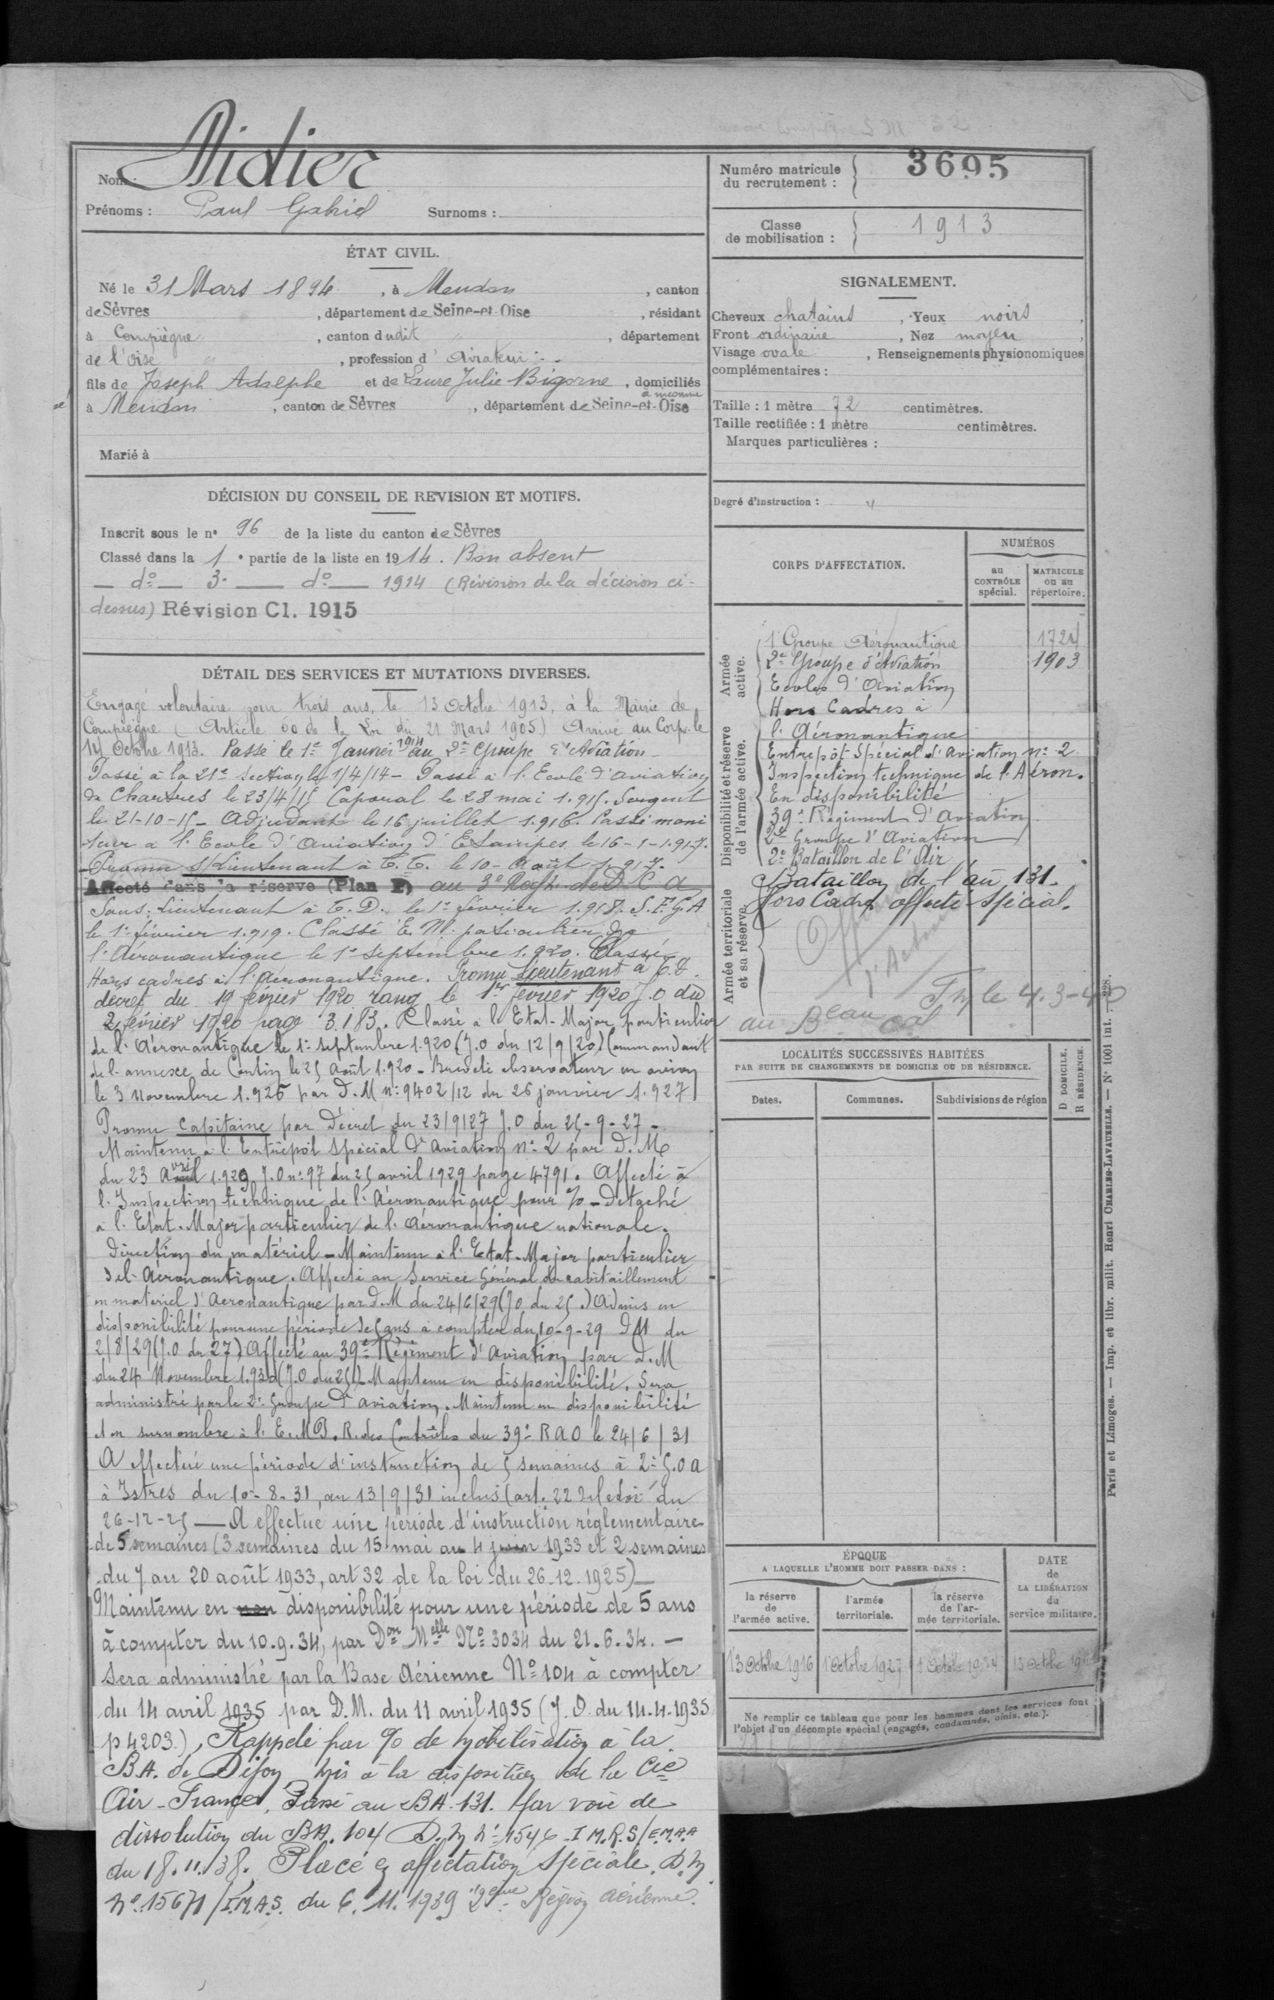 Nom Didier
Prénoms : Paul Gabriel Surnoms :
ÉTAT CIVIL.
Né le 31 Mars 1894, à Meudon, canton
de Sèvres, département de Seine-et-Oise, résidant
à Compiègne, canton dudit, département
de l'Oise, profession d'Aviateur
fils de Joseph Adolphe et de Laure Julie Bigorne, domiciliés
à Meudon, canton de Sèvres, département de Seine-et-Oise
Marié à
DÉCISION DU CONSEIL DE REVISION ET MOTIFS.
Inscrit sous le n° 96 de la liste du canton de Sèvres
Classé dans la 1e partie de la liste en 1914. Bon absent
— do — 3e — do — 1914 (Révision de la décision ci-
dessus) Révision Cl. 1915
DÉTAIL DES SERVICES ET MUTATIONS DIVERSES.
Engagé volontaire pour trois ans, le 13 Octobre 1913, à la Mairie de
Compiègne (Article 50 de la Loi du 21 Mars 1905) Arrivé au Corps le
14 Octobre 1913. Passé le 1er Janvier 1914 au 2e Groupe d'Aviation
Passé à la 21e Section le 1/4/14 - Passé à l'Ecole d'aviation
de Chartres le 23/4/15 Caporal le 28 mai 1.915. Sergent
le 21-10-15 - Adjudant le 16 juillet 1.916. Passé moni
teur à l'Ecole d'Aviation d'Etampes le 16-1-1.917.
Promu s/Lieutenant à T.T. le 10 Août 1.917.
Affecté dans la réserve (Plan P) au 3e de D C A
Sous-Lieutenant à T.D. le 1er février 1.918. S.F.G.A
le 1er février 1.919. Classé E.M. particulier de
l'Aéronautique le 1er septembre 1.920. Classé
Hors cadres à l'Aéronautique. Promu Lieutenant à T.T.
décret du 19 février 1920 rang le 1er février 1920 J.O du
2 février 1920 page 3.183. Classé à l'Etat-Major particulier
de l'Aéronautique le 1er septembre 1.920 (J.O du 12/9/20) Commandant
de l'annexe de le 25 août 1.920 - Breveté observateur en avion
le 3 novembre 1.926 par D.M n° 9402/12 du 26 janvier 1.927
Promu Capitaine par Décret du 23/9/27 J.O du 25-9-27 -
Maintenu à l'Entrepôt Spécial d'Aviation n° 2 par D.M
du 23 Avril 1.929 J.O n° 97 du 25 avril 1929 page 4791. Affecté à
l'Inspection technique de l'Aéronautique pour % - Détaché
à l'Etat-Major particulier de l'Aéronautique nationale.
Direction du matériel - Maintenu à l'Etat-Major particulier
de l'Aéronautique. Affecté au Service Général du ravitaillement
en matériel d'Aéronautique par D.M du 24/6/29 (J.O du 25) Admis en
disponibilité pour une période de 5 ans à compter du 10-9-29 DM du
2/8/29 (J.O du 27) Affecté au 39e Régiment d'Aviation par D.M
du 24 Novembre 1.930 (J.O du 25) Maintenu en disponibilité. Sera
administré par le 2e Groupe d'aviation. Maintenu en disponibilité
et en surnombre à l'E.M.P. R. des Contrôles du 39e R A O le 24/6/31
A effectué une période d'instruction de 5 semaines à 2e G.O.A
à Istres du 10-8-31, au 13/9/31 inclus (art. 22 de la loi du
26-12-25 — A effectué une période d'instruction réglementaire
de 5 semaines (3 semaines du 15 mai au 4 juin 1933 et 2 semaines
du 7 au 20 août 1933, art 32 de la loi du 26.12.1925) —
Maintenu en non disponibilité pour une période de 5 ans
à compter du 10.9.34, par Don Melle No 3034 du 21.6.34. —
Sera administré par la Base Aérienne No 104 à compter
du 14 avril 1935 par D.M. du 11 avril 1935 (J.O. du 14.4.1935
p 4203), Rappelé par % de mobilisation à la
B.A. de Dijon, mis à la disposition de la Cie
Air-France, Passé au BA. 131. Par voie de
dissolution du BA. 104 D.M n° 1546 - I M.R.S/E.M.A.A
du 18.11.38. Placé en affectation Spéciale. D.M
n° 15671/I.M.A.S. du 6.11.1939 2ème Région Aérienne.
Numéro matricule du recrutement : 3695
Classe de mobilisation : 1913
SIGNALEMENT.
Cheveux chatains, Yeux noirs,
Front ordinaire, Nez moyen,
Visage ovale, Renseignements physionomiques
complémentaires :
Taille : 1 mètre 72 centimètres.
Taille rectifiée : 1 mètre centimètres.
Marques particulières :
Degré d'instruction :
CORPS D'AFFECTATION.
NUMÉROS
au CONTRÔLE spécial.
MATRICULE ou au répertoire.
Armée active.
Disponibilité et réserve de l'armée active.
Armée territoriale et sa réserve.
1er Groupe Aéronautique 1724
2e Groupe d'Aviation 1903
Ecoles d'Aviation
Hors Cadres à
l'Aéronautique
Entrepôt Spécial d'Aviation n° 2
Inspection technique de l'Aéron.
En disponibilité
39e Régiment d'Aviation
2e Groupe d'Aviation
2e Bataillon de l'Air
Bataillon de l'air 131.
Hors Cadre affecté spécial.
LOCALITÉS SUCCESSIVES HABITÉES
PAR SUITE DE CHANGEMENTS DE DOMICILE OU DE RÉSIDENCE.
D DOMICILE.
R RÉSIDENCE.
Dates. Communes. Subdivisions de région
ÉPOQUE
A LAQUELLE L'HOMME DOIT PASSER DANS :
DATE de LA LIBÉRATION du service militaire.
la réserve de l'armée active.
l'armée territoriale.
la réserve de l'armée territoriale.
13 Octobre 1916
Ne remplir ce tableau que pour les hommes dont les services font
l'objet d'un décompte spécial (engagés, condamnés, omis, etc.).
Paris et Limoges. — Imp. et libr. milit. Henri CHARLES-LAVAUZELLE. — N° 1001 int.